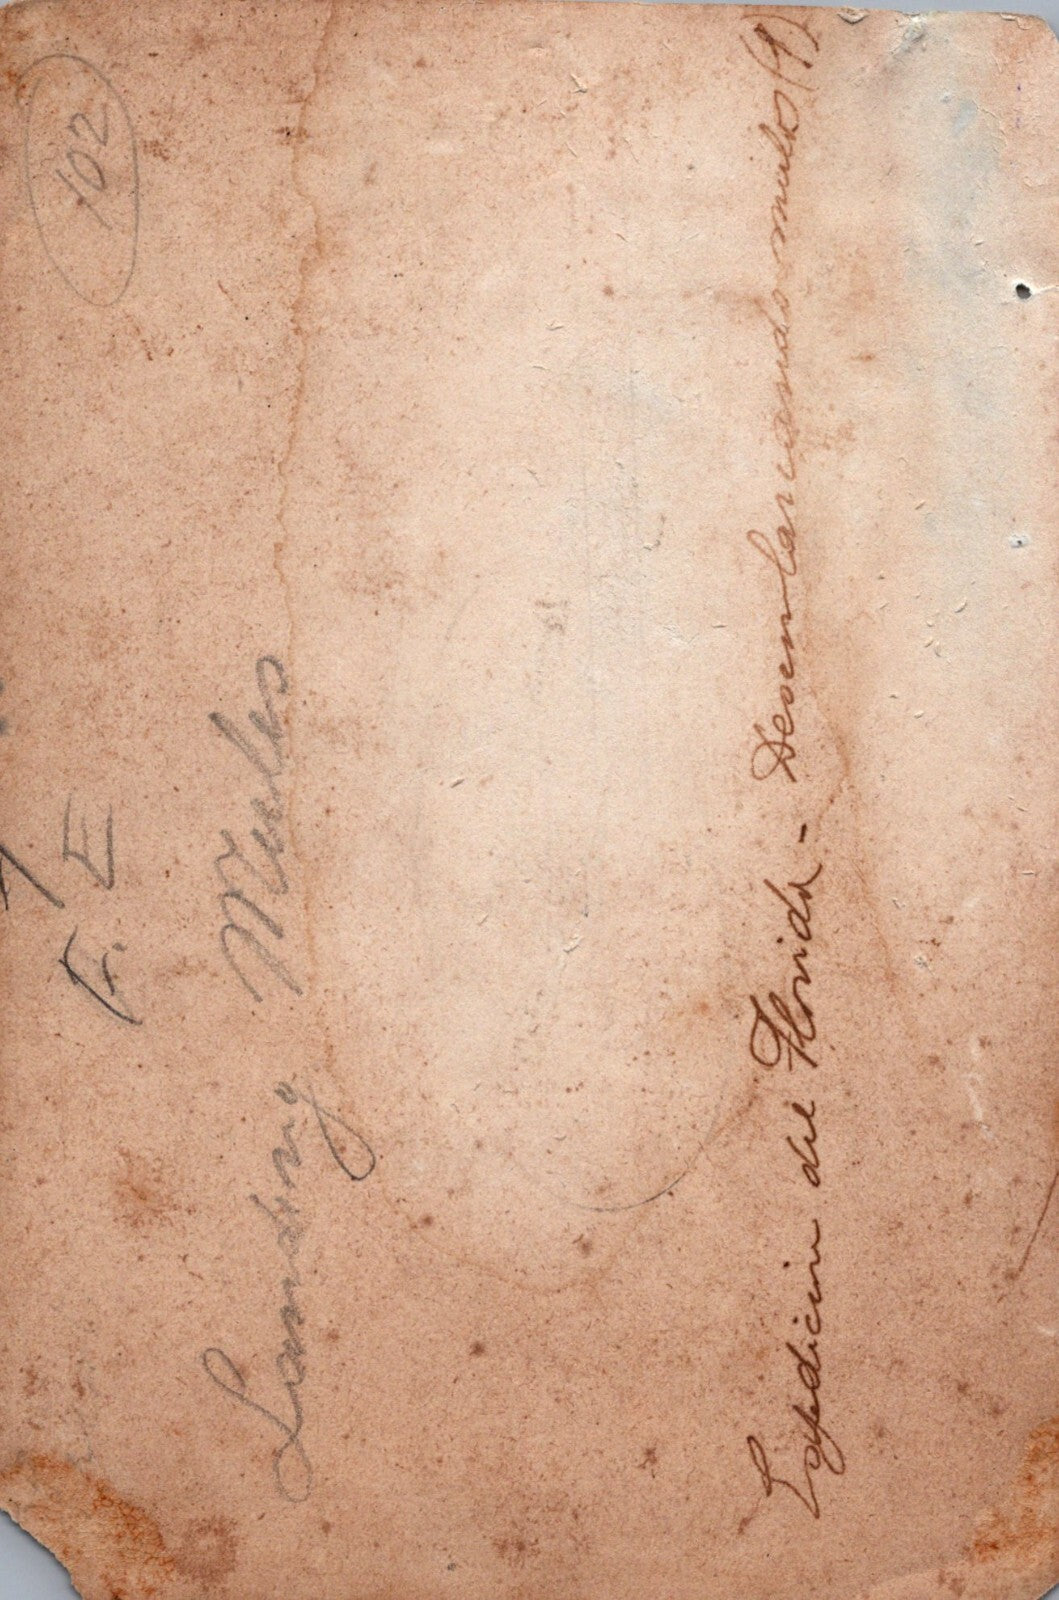 102
F. E
Landing Mules
Expedicion del Florida - Desembarcando mulos (9)